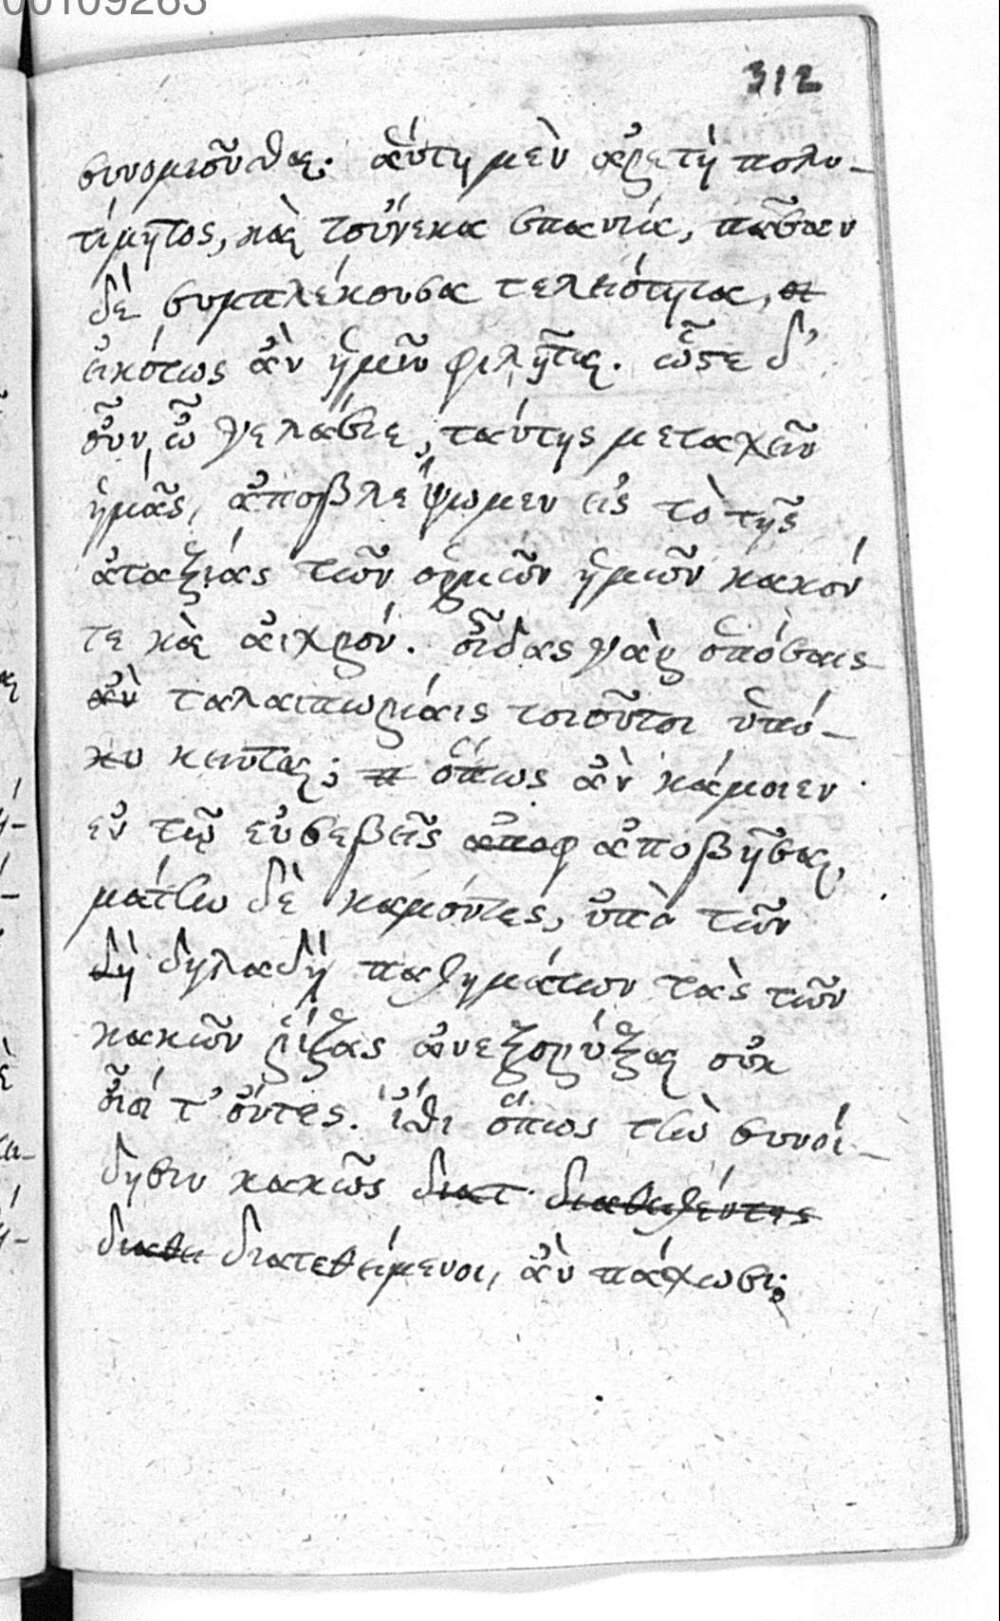 00109263
312
συνομιοῦνται. αὕτη μὲν ἀρετὴ πολυ-
τίμητος, καὶ τοὔνεκα σπανιά, πᾶσαν
δὲ συμπλέκουσα τελειότητα,
εἰκότως ἂν ἡμῖν φιλῆται. ὥστε δ'
οὖν, ὦ γελάσιε, ταύτης μετασχεῖν
ἡμᾶς, ἀποβλέψωμεν εἰς τὸ τῆς
ἀταξίας τῶν ὁρμῶν ἡμῶν κακόν
τε καὶ αἰσχρόν. οἶδας γὰρ ὁπόσαις
ἂν ταλαιπωρίαις τοιοῦτοι ὑπό-
κεινται; ὅπως ἂν κάμοιεν
ἐν τῷ εὐσεβεῖς ἀποβῆσαι,
μάτην δὲ καμόντες, ὑπὸ τῶν
δὴ δηλαδὴ παθημάτων τὰς τῶν
κακῶν ῥίζας ἀνεξορύξαι οὐκ
οἷοί τ' ὄντες. ἴθι ὅπως τὴν συνοί-
δησιν κακῶς διατ διατιθέντες
διαθε διατεθειμένοι, ἂν πάσχωσι;